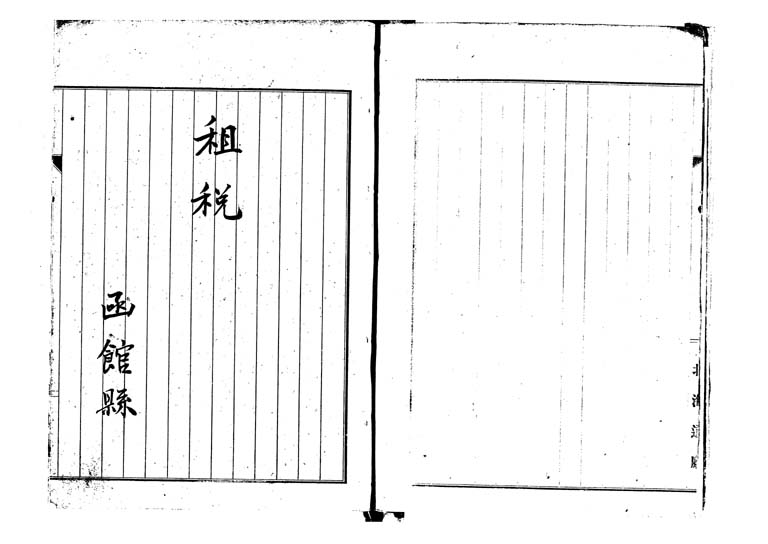 北海道廳
租税
函館縣